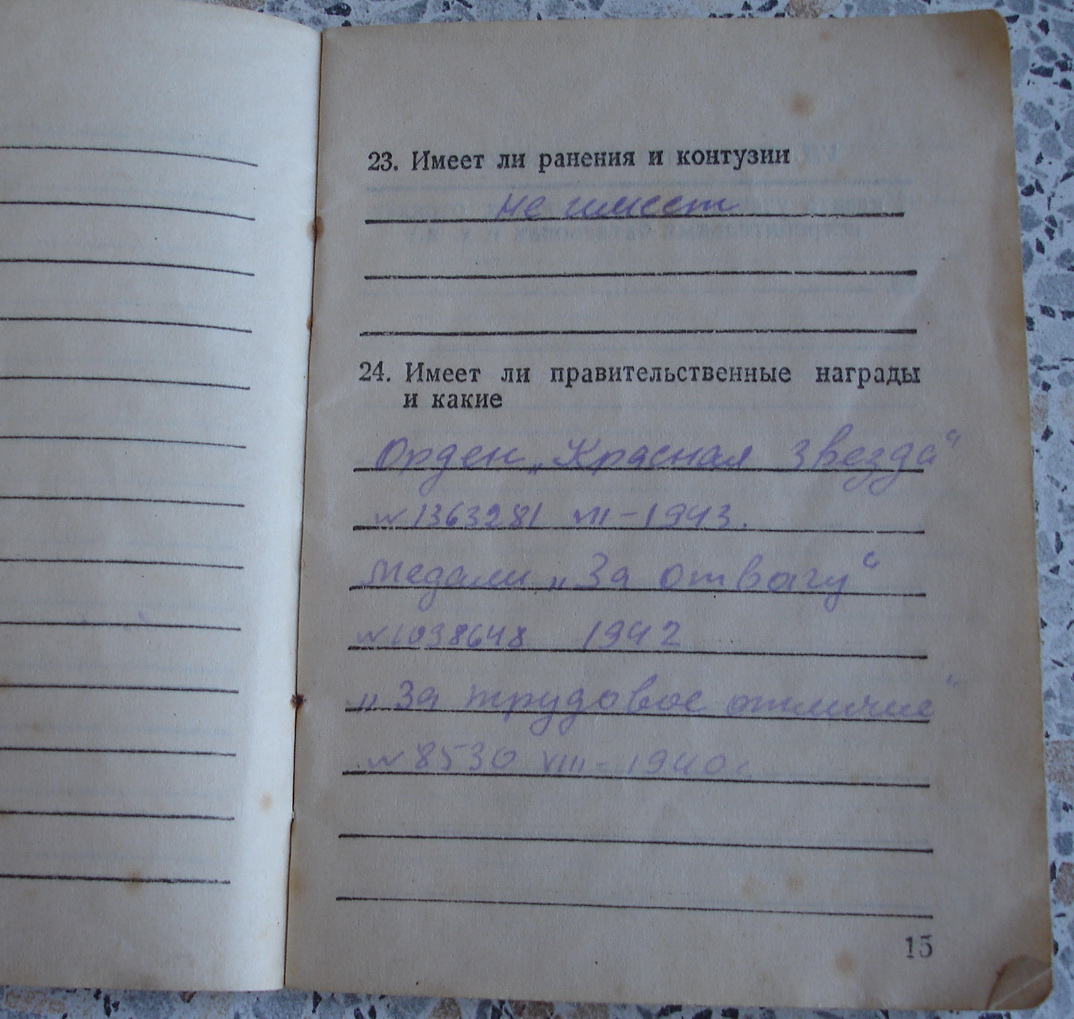 23. Имеет ли ранения и контузии
не имеет
24. Имеет ли правительственные награды
и какие
Орден „Красная звезда“
№1363281 VII – 1943.
медали „За отвагу“
№1038648 1942
„За трудовое отличие“
№8530 VIII – 1940г.
15